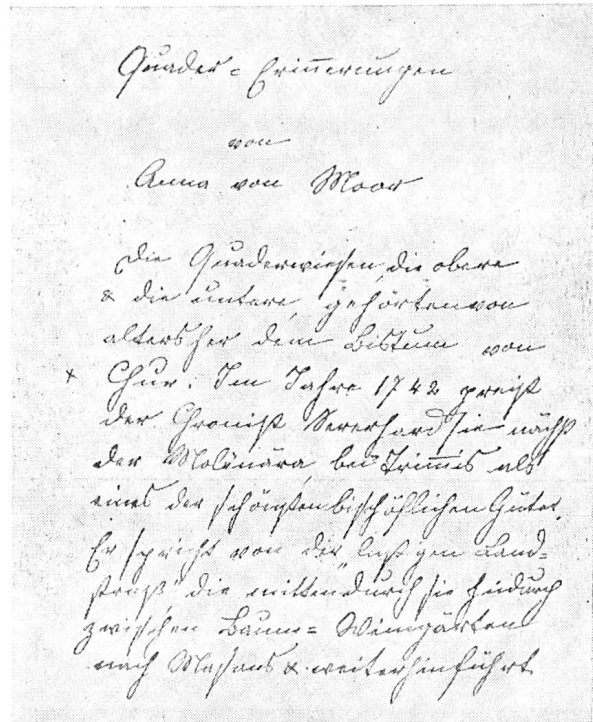 Quader = Erinnerungen
von
Anna von Moor
Die Quaderwiesen, die obere
& die untere, gehörten von
altersher dem Bistum von
x Chur. Im Jahre 1742 preist
der Chronist Sererhard sie nächst
der Molinära bei Trimmis als
eines der schönsten bischöflichen Güter.
Er spricht von der „ Land=
straß" die mitten durch sie hindurch
zwischen Baum= Weingärten
nach Masans & weiterhin führt